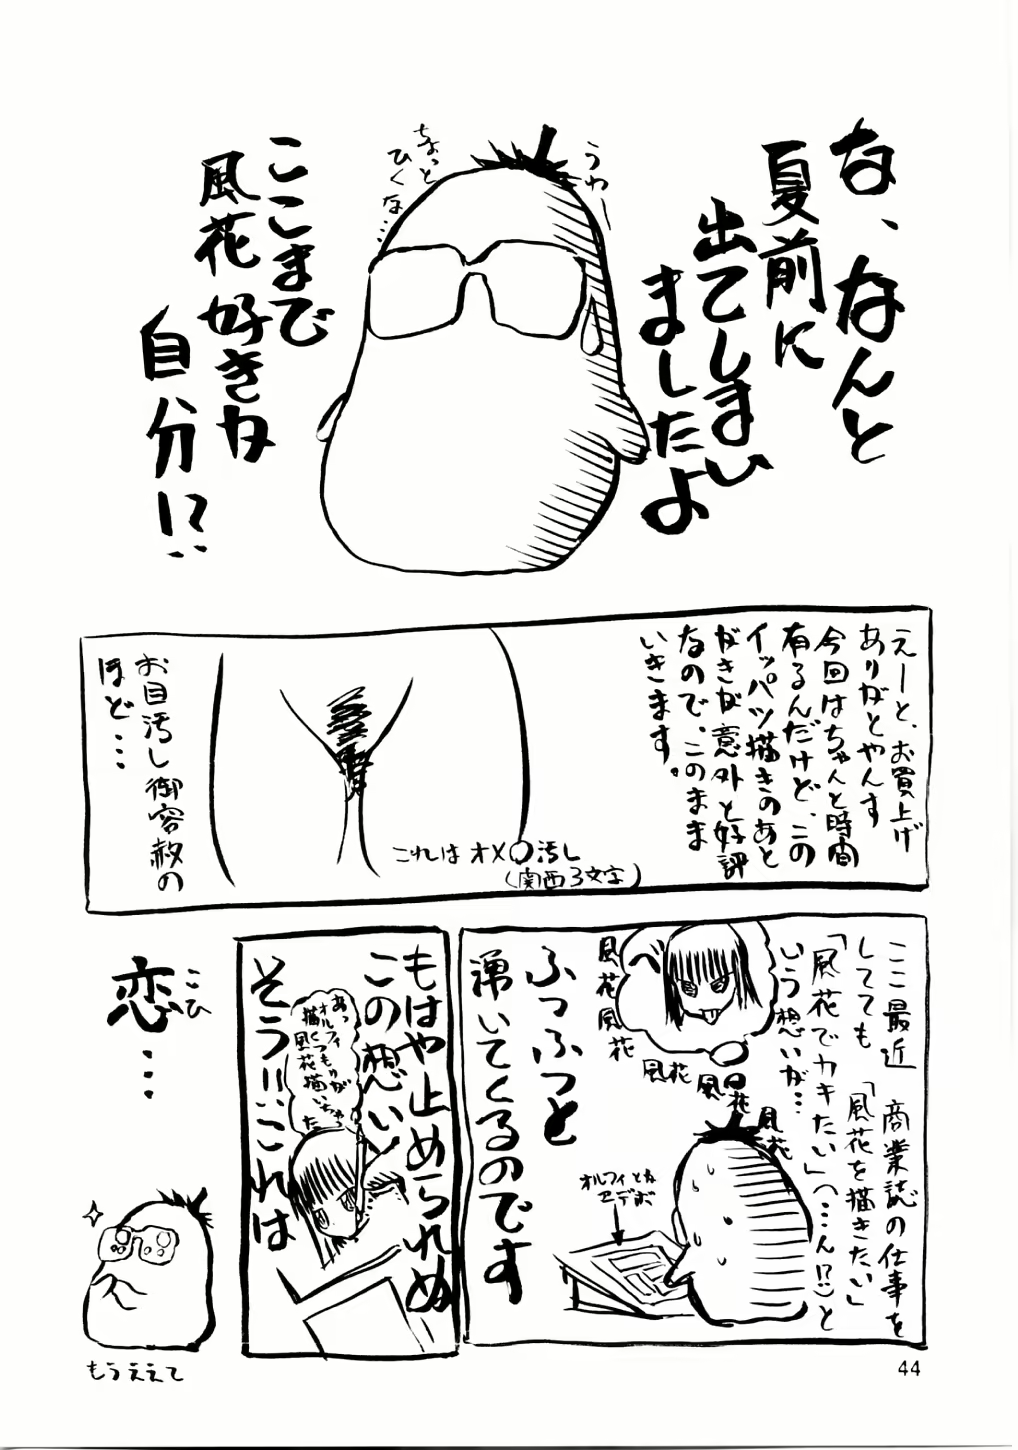 な、なんと
夏前に
出てしまい
ましたよ
うわー
ちょっと
ひくな…
ここまで
風花好きか
自分!?
えーと、お買上げ
ありがとやんす
今回はちゃんと時間
有るんだけど、この
イッパツ描きのあと
がきが意外と好評
なので、このまま
いきます。
これはオメ〇汚し
(関西3文字)
お目汚し御容赦の
ほど・・・・
ここ最近 商業誌の仕事を
してても 「風花を描きたい」
「風花でカキたい」(…ん!?)と
いう想いが…
風花
風花
風花
風花
風花
オルフィとか
セデボ
ふつふつと
湧いてくるのです
もはや止められぬ
この想い
あっ
オルフィ
描くつもりが
風花描いちゃ
た
そう!!これは
恋…
こひ
もうええて
44